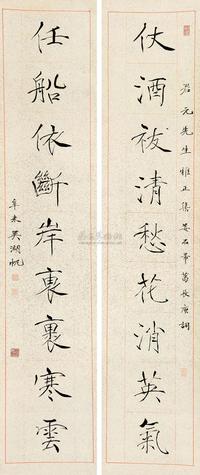 仗酒祓清愁花消英氣
君元先生雅正集姜石帚葛長庚詞
任船依斷岸褎裏寒雲
辛未吳湖帆